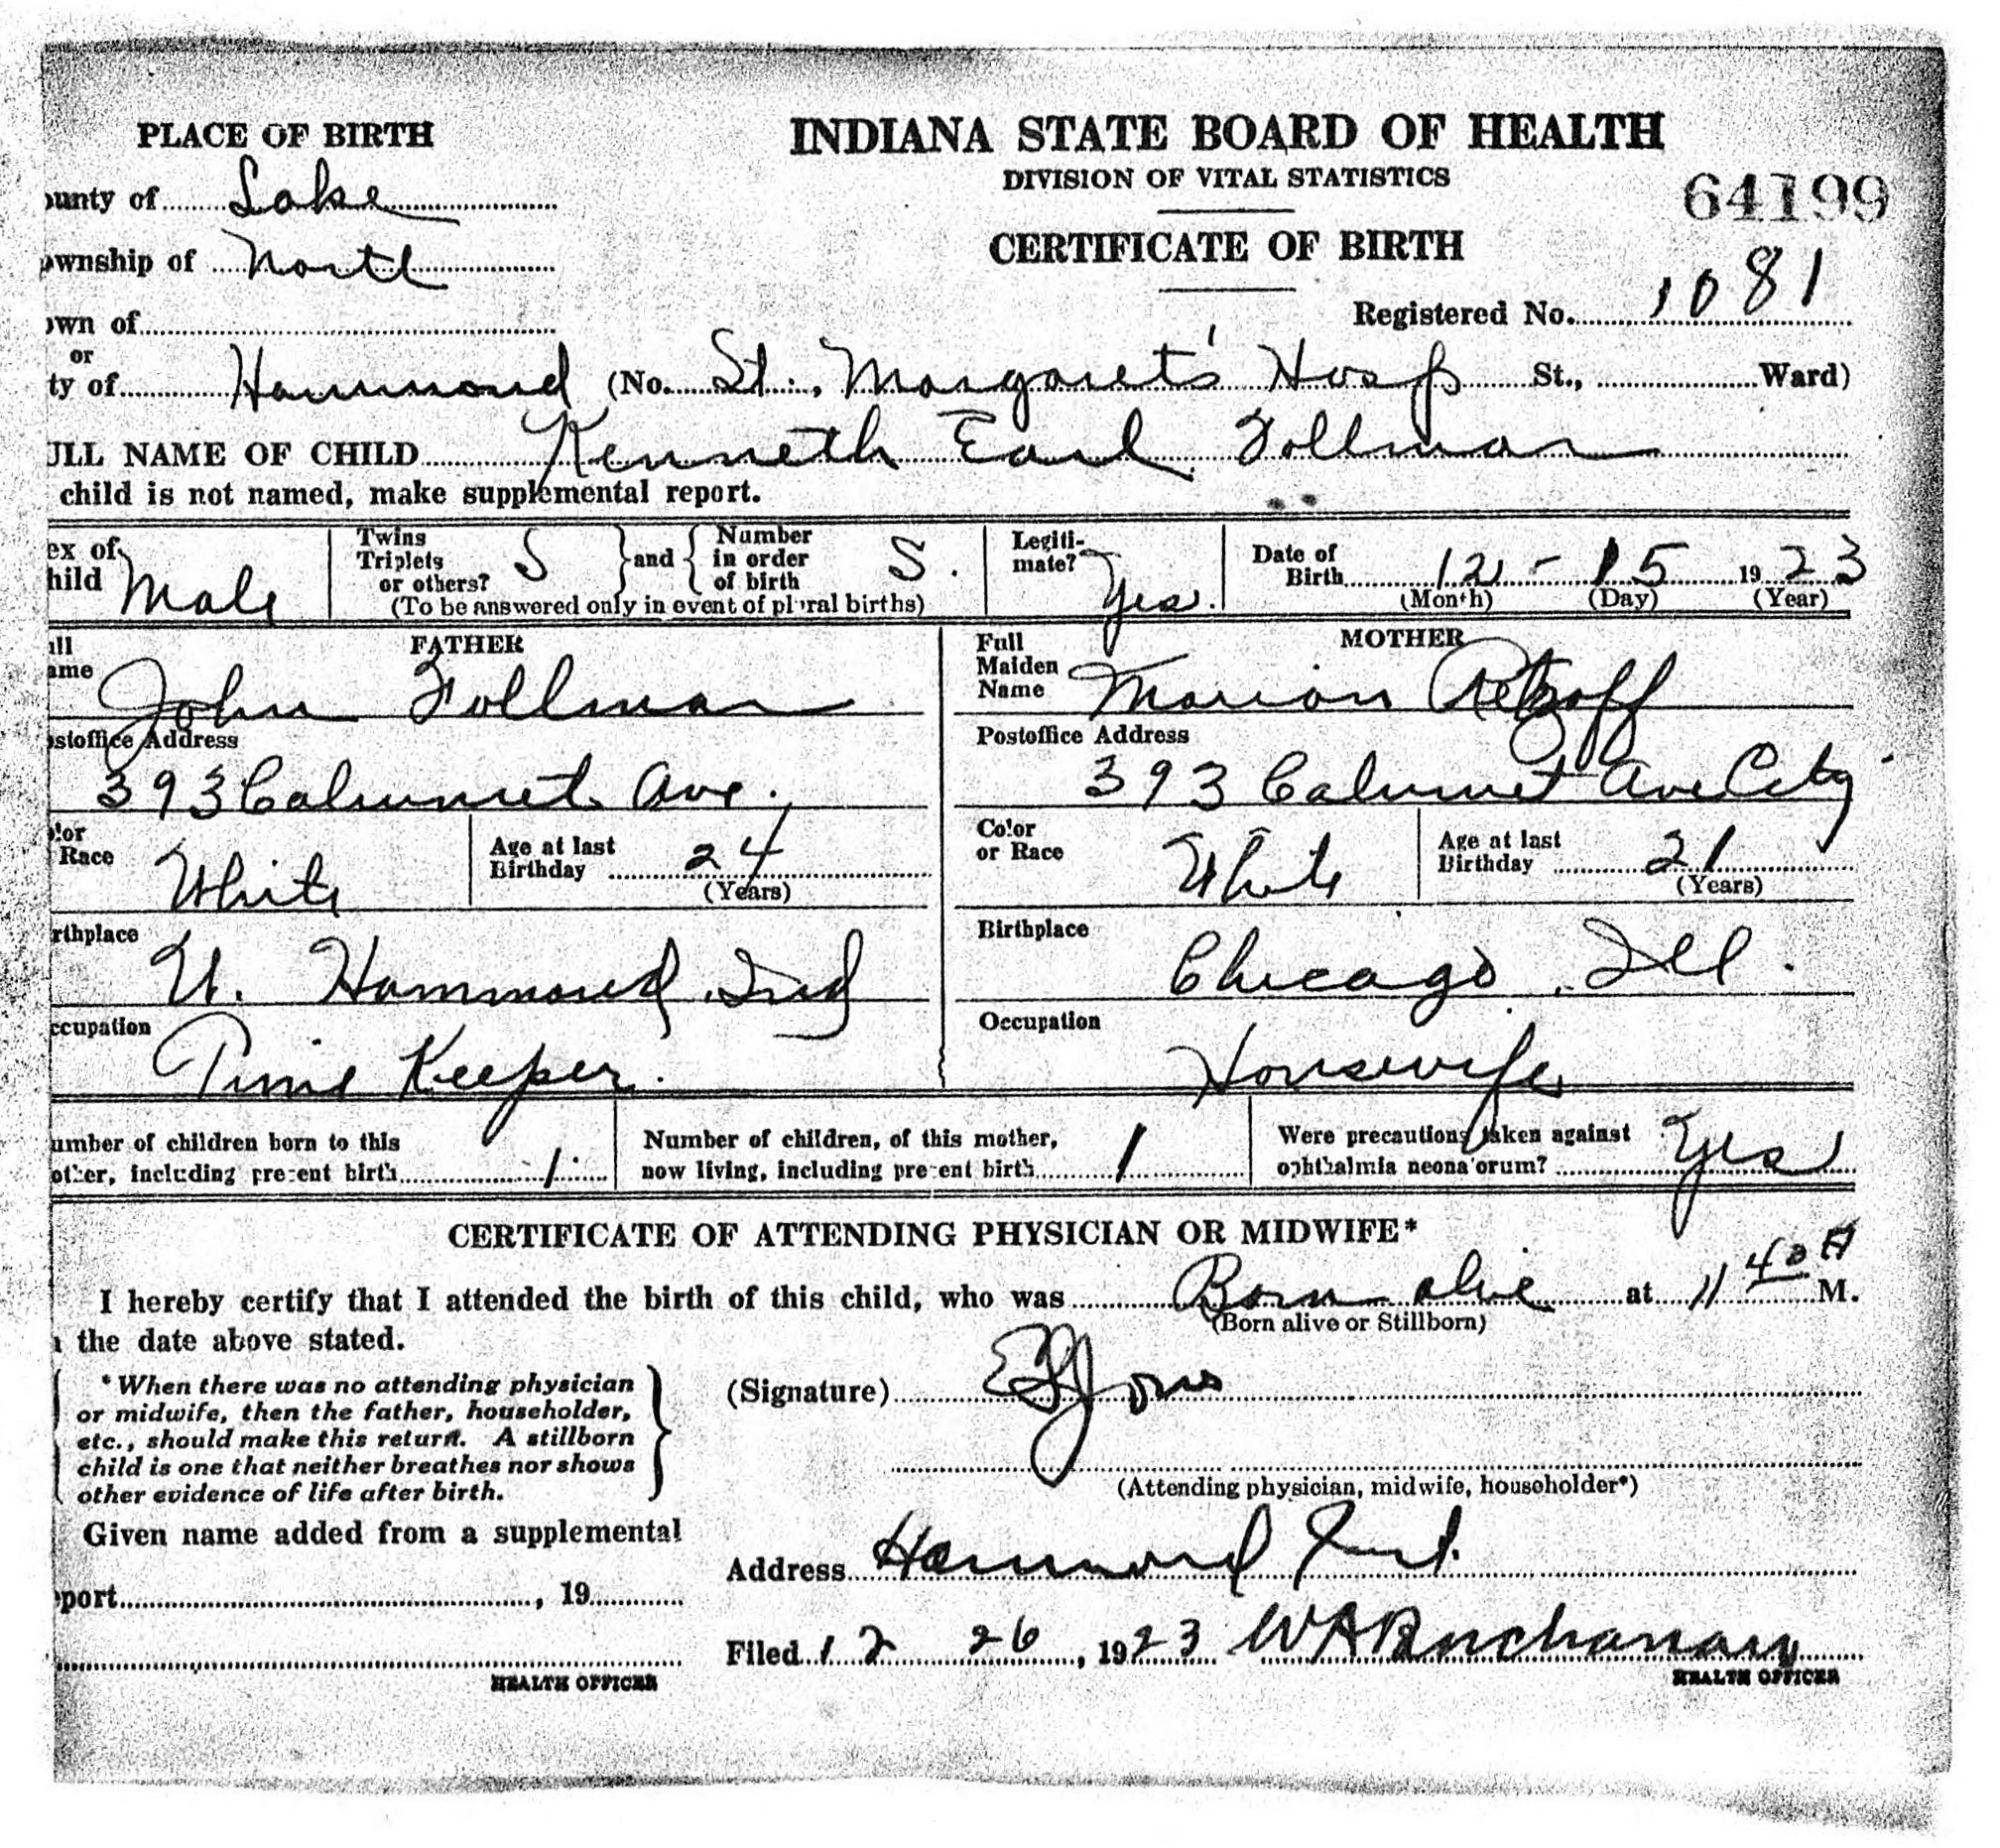 PLACE OF BIRTH
INDIANA STATE BOARD OF HEALTH
DIVISION OF VITAL STATISTICS
64199
ounty of Lake
CERTIFICATE OF BIRTH
ownship of North
Registered No. 1081
own of
or
ty of Hammond (No. St. Margaret's Hosp St., Ward)
ULL NAME OF CHILD Kenneth Earl Follman
child is not named, make supplemental report.
ex of hild Male
Twins Triplets or others? S } and { Number in order of birth S.
(To be answered only in event of plural births)
Legiti-mate? Yes.
Date of Birth 12 - 15 1923
(Month) (Day) (Year)
FATHER
ull ame John Follman
MOTHER
Full Maiden Name Marion
ostoffice Address
393 Calumet Ave.
Postoffice Address
393 Calumet Ave City
olor Race White
Age at last Birthday 24
(Years)
Color or Race White
Age at last Birthday 21
(Years)
rthplace
Hammond, Ind
Birthplace
Chicago, Ill.
ccupation
Time Keeper.
Occupation
Housewife
umber of children born to this
other, including present birth 1
Number of children, of this mother,
now living, including present birth 1
Were precautions taken against
ophthalmia neonatorum? Yes
CERTIFICATE OF ATTENDING PHYSICIAN OR MIDWIFE*
I hereby certify that I attended the birth of this child, who was Born alive at 11 40 A M.
(Born alive or Stillborn)
the date above stated.
* When there was no attending physician
or midwife, then the father, householder,
etc., should make this return. A stillborn
child is one that neither breathes nor shows
other evidence of life after birth.
(Signature) Jones
(Attending physician, midwife, householder*)
Given name added from a supplemental
eport , 19
HEALTH OFFICER
Address Hammond Ind.
Filed 12 26, 1923 WA Buchanan
HEALTH OFFICER